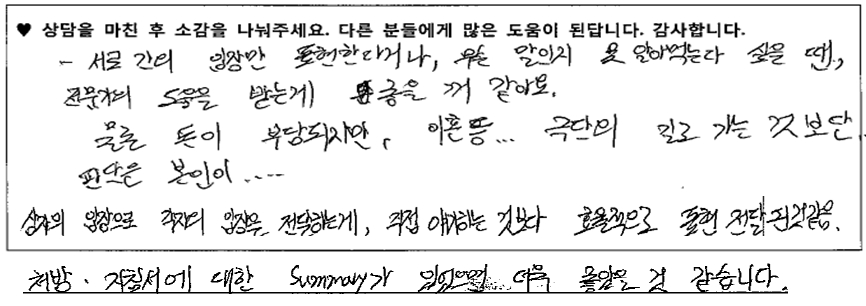 ♥ 상담을 마친 후 소감을 나눠주세요. 다른 분들에게 많은 도움이 된답니다. 감사합니다.
- 서로 간의 입장만 표현한다거나, 무슨 말인지 못 알아먹는다 싶을 땐,
전문가의 도움을 받는게 좋을 꺼 같아요.
물론 돈이 부담되지만, 이혼 등... 극단의 길로 가는 것 보단..
판단은 본인이.....
상대의 입장으로 각자의 입장을 전달하는게, 직접 얘기하는 것보다 효율적으로 표현 전달 된것같음.
처방·지침서에 대한 Summary가 있었으면 더욱 좋았을 것 같습니다.